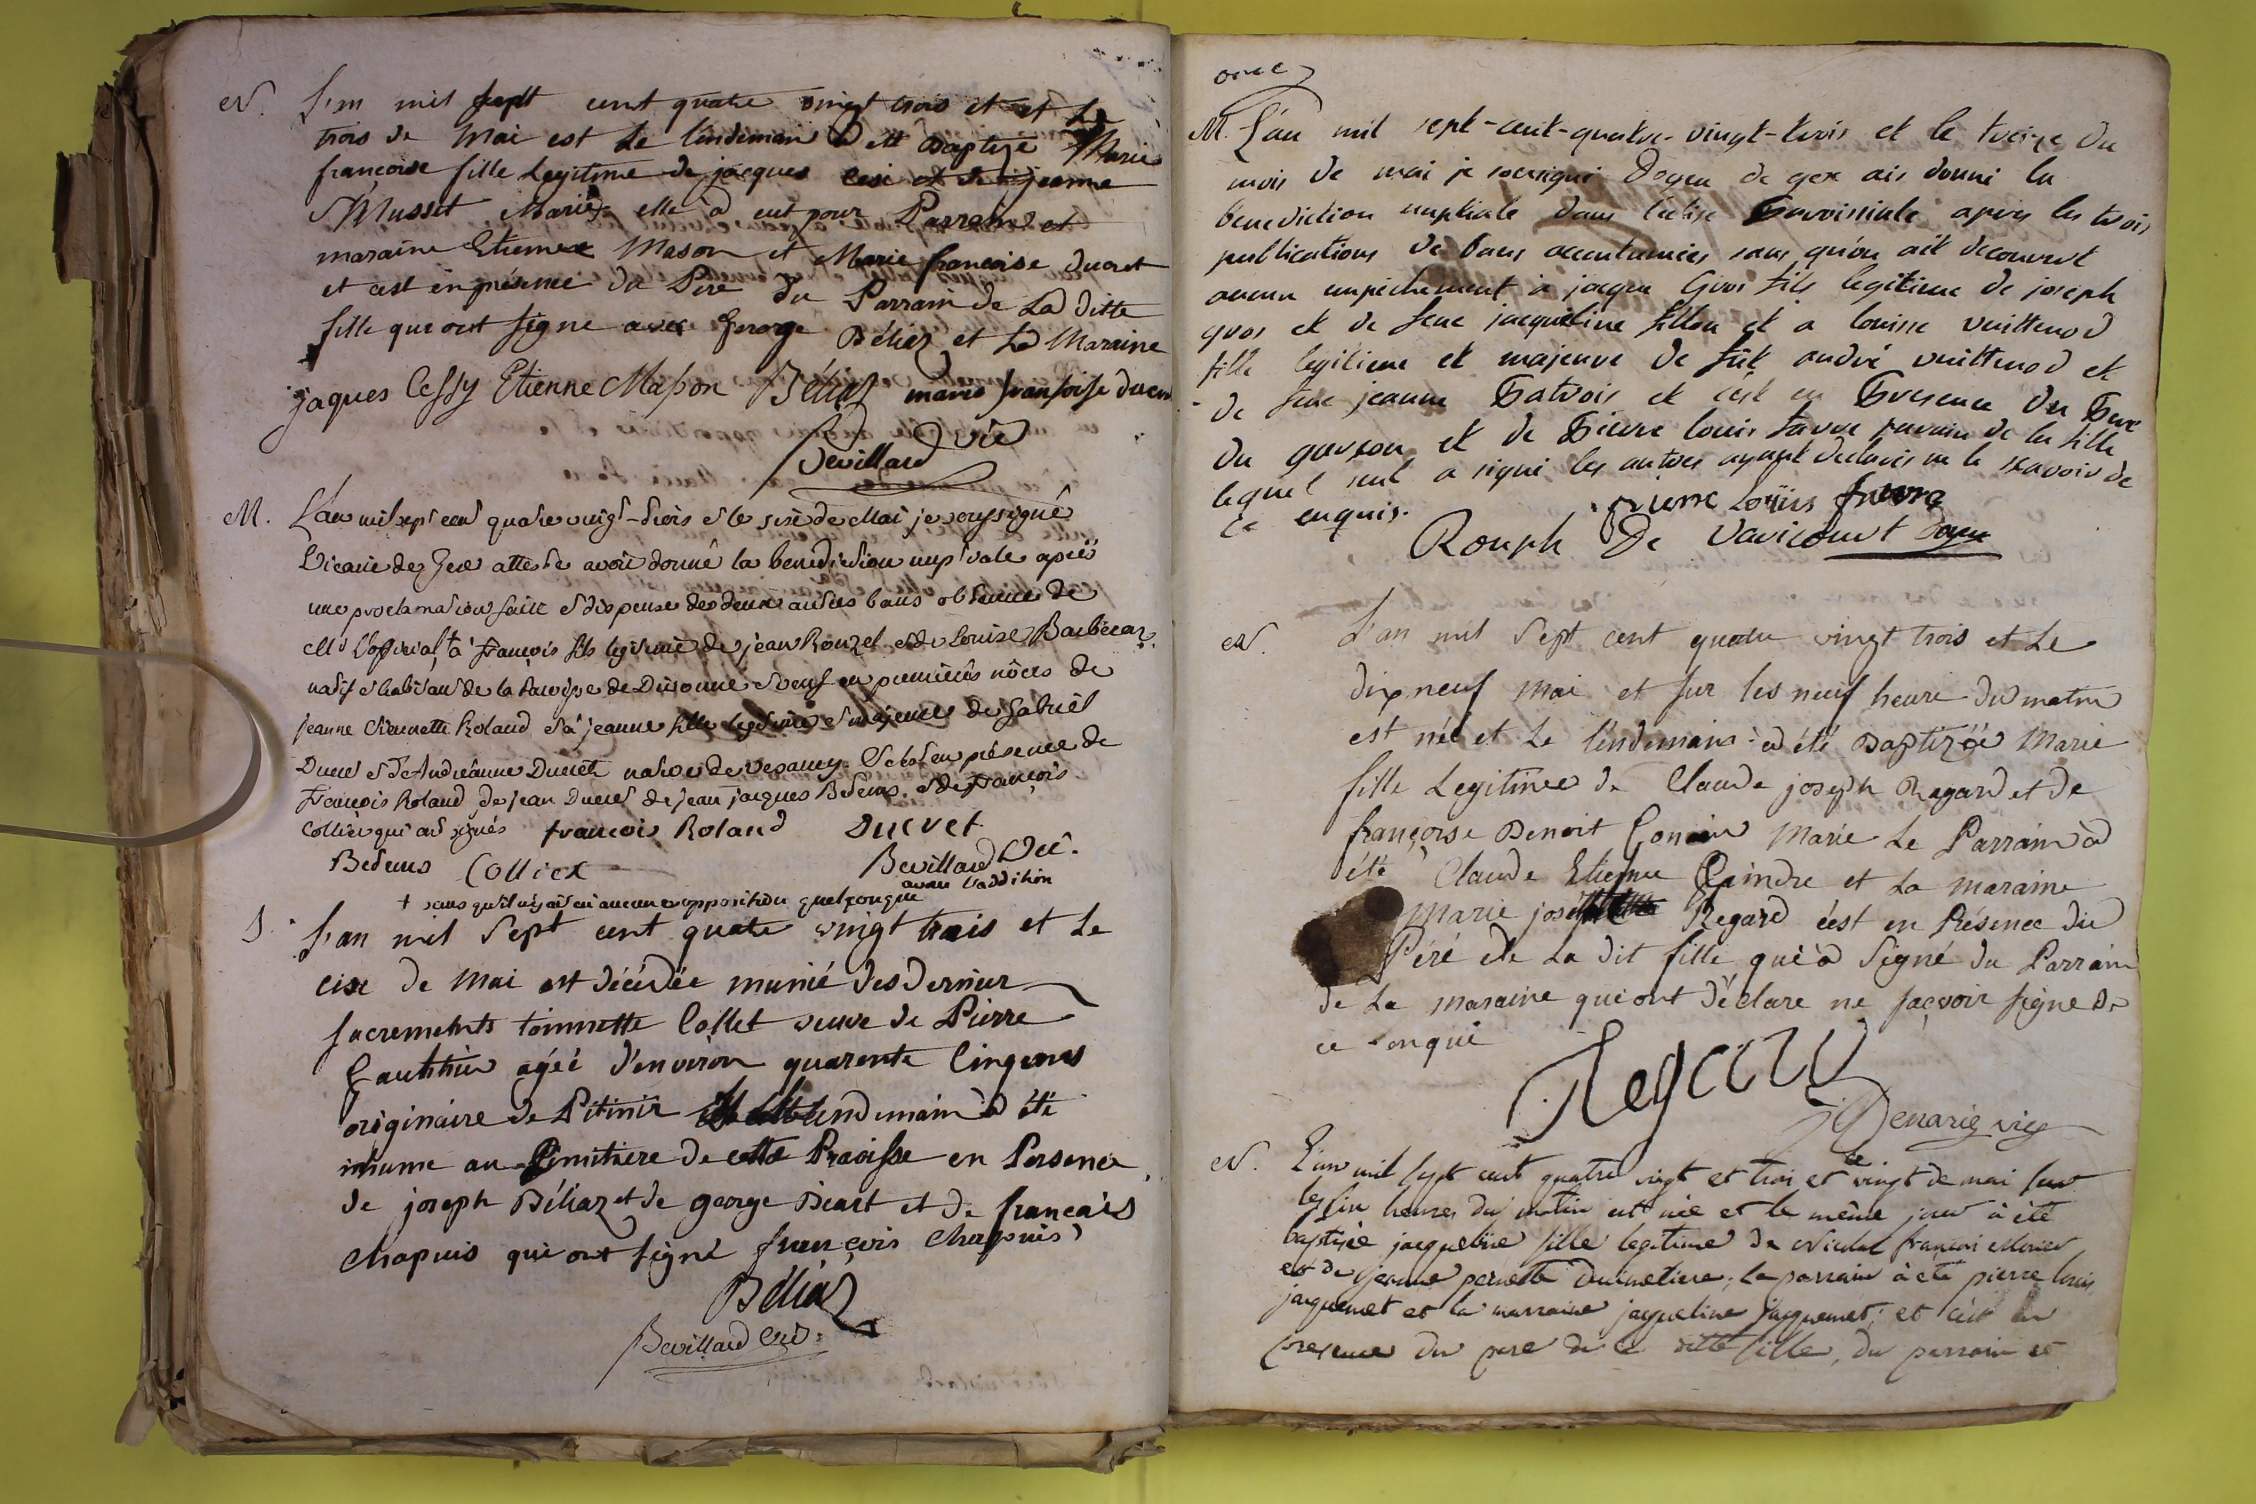 N. L'an mil sept cent quatre vingt trois et et le
trois de Mai est Le l'endemain a ett Baptize Marie
francoise fille Legitime de jacques Cesi et de jeanne
Musset Mariés elle a eut pour Parrain et
maraine Etienne Mason et Marie francoise ducret
et cést en présence du Pere du Parrain de La ditte
fille qui ont signe avec George Béliaz et La Maraine
jaques Cessy Etienne Masson Béliaz marie fransoise ducret
Bevillard vie
M. L'an mil sept cent quatre vingt-trois et le sixe de Mai je soussigné
Vicaire de Gex atteste avoir donné la bénédiction nuptiale après
une proclamation faite et dispense des deux autres bans obtenue de
Mr L'official + à françois fils legitime de jean Rouzel et de Louise Barbeear
natif et habitant de la Paroisse de Divonne et veuf en premières nôces de
jeanne Etiennette Roland et à jeanne fille legitime et majeure de Gabriel
Ducret et d'Andréanne Ducret native de Vesancy. Et c'est en présence de
François Roland de jean Ducret de jean jacques Bedeus et de François
Collier qui ont signés françois Roland Ducret
Bedeus Colliex Bevillard Vic.
avant l'addition
+ sans qu'il n'y ait eu aucune opposition quelconque
S. L'an mil Sept cent quatre vingt trois et Le
cixe de Mai est décédée munié des dernier
sacrements toinnette Collet veuve de Pierre
Gauthier agéé d'environ quarente Cinq ans
originaire de Pitinir lendemain a été
inhume au Cimitiere de cette Praoisse en Persence
de joseph Béliaz et de george Bicart et de francais
Chapuis qui ont signé françois Chapuis
Béliaz
Bevillard vic
onze
M. L'an mil sept-cent-quatre-vingt-trois et le treize du
mois de mai je soussigné Doyen de gex ais donné la
benediction nuptiale dans l'eclise Parroissiale apres les trois
publications de bans accoutumées sans qu'on ait decouvert
aucun empechement a jaque Gros fils legitime de joseph
gros et de feue jacqueline fillon et a louise vuittenod
fille legitime et majeure de fût andré vuittenod et
de feue jeanne Patrois et c'est en Presence du Pere
du garson et de Pierre louis favre parain de la fille
lequel seul a signé les autres ayant declarés ne le scavoir de
ce enquis. Pierre Loüis favre
Rouph De Varicourt Doyen
N. L'an mil Sept cent quatre vingt trois et Le
dixneuf Mai et sur les neuf heure du matin
est née et Le l'endemain a été Baptizéé Marie
fille Legitime de Claude joseph Regard et de
françoise Benoit Conain Marie Le Parrain a
été Claude Etienne Gindre et La maraine
Marie josé Regard c'est en Présence du
Péré de La dit fille qui a Signé du Parrain
de La maraine qui ont déclare ne sacvoir signe de
ce enqui
Regard
Denarié vic
N. L'an mil sept cent quatre vingt et trois et le vingt de mai sur
les six heures du matin est née et le même jour à été
baptisée jacqueline fille legitime de Nicolas françois Monier
et de jeanne pernette Dumetiere; Le parrain à été pierre louis
jacquemet et la marraine jaqueline jacquemet; et c'est en
presence du pere de la ditte fille, du parrain et